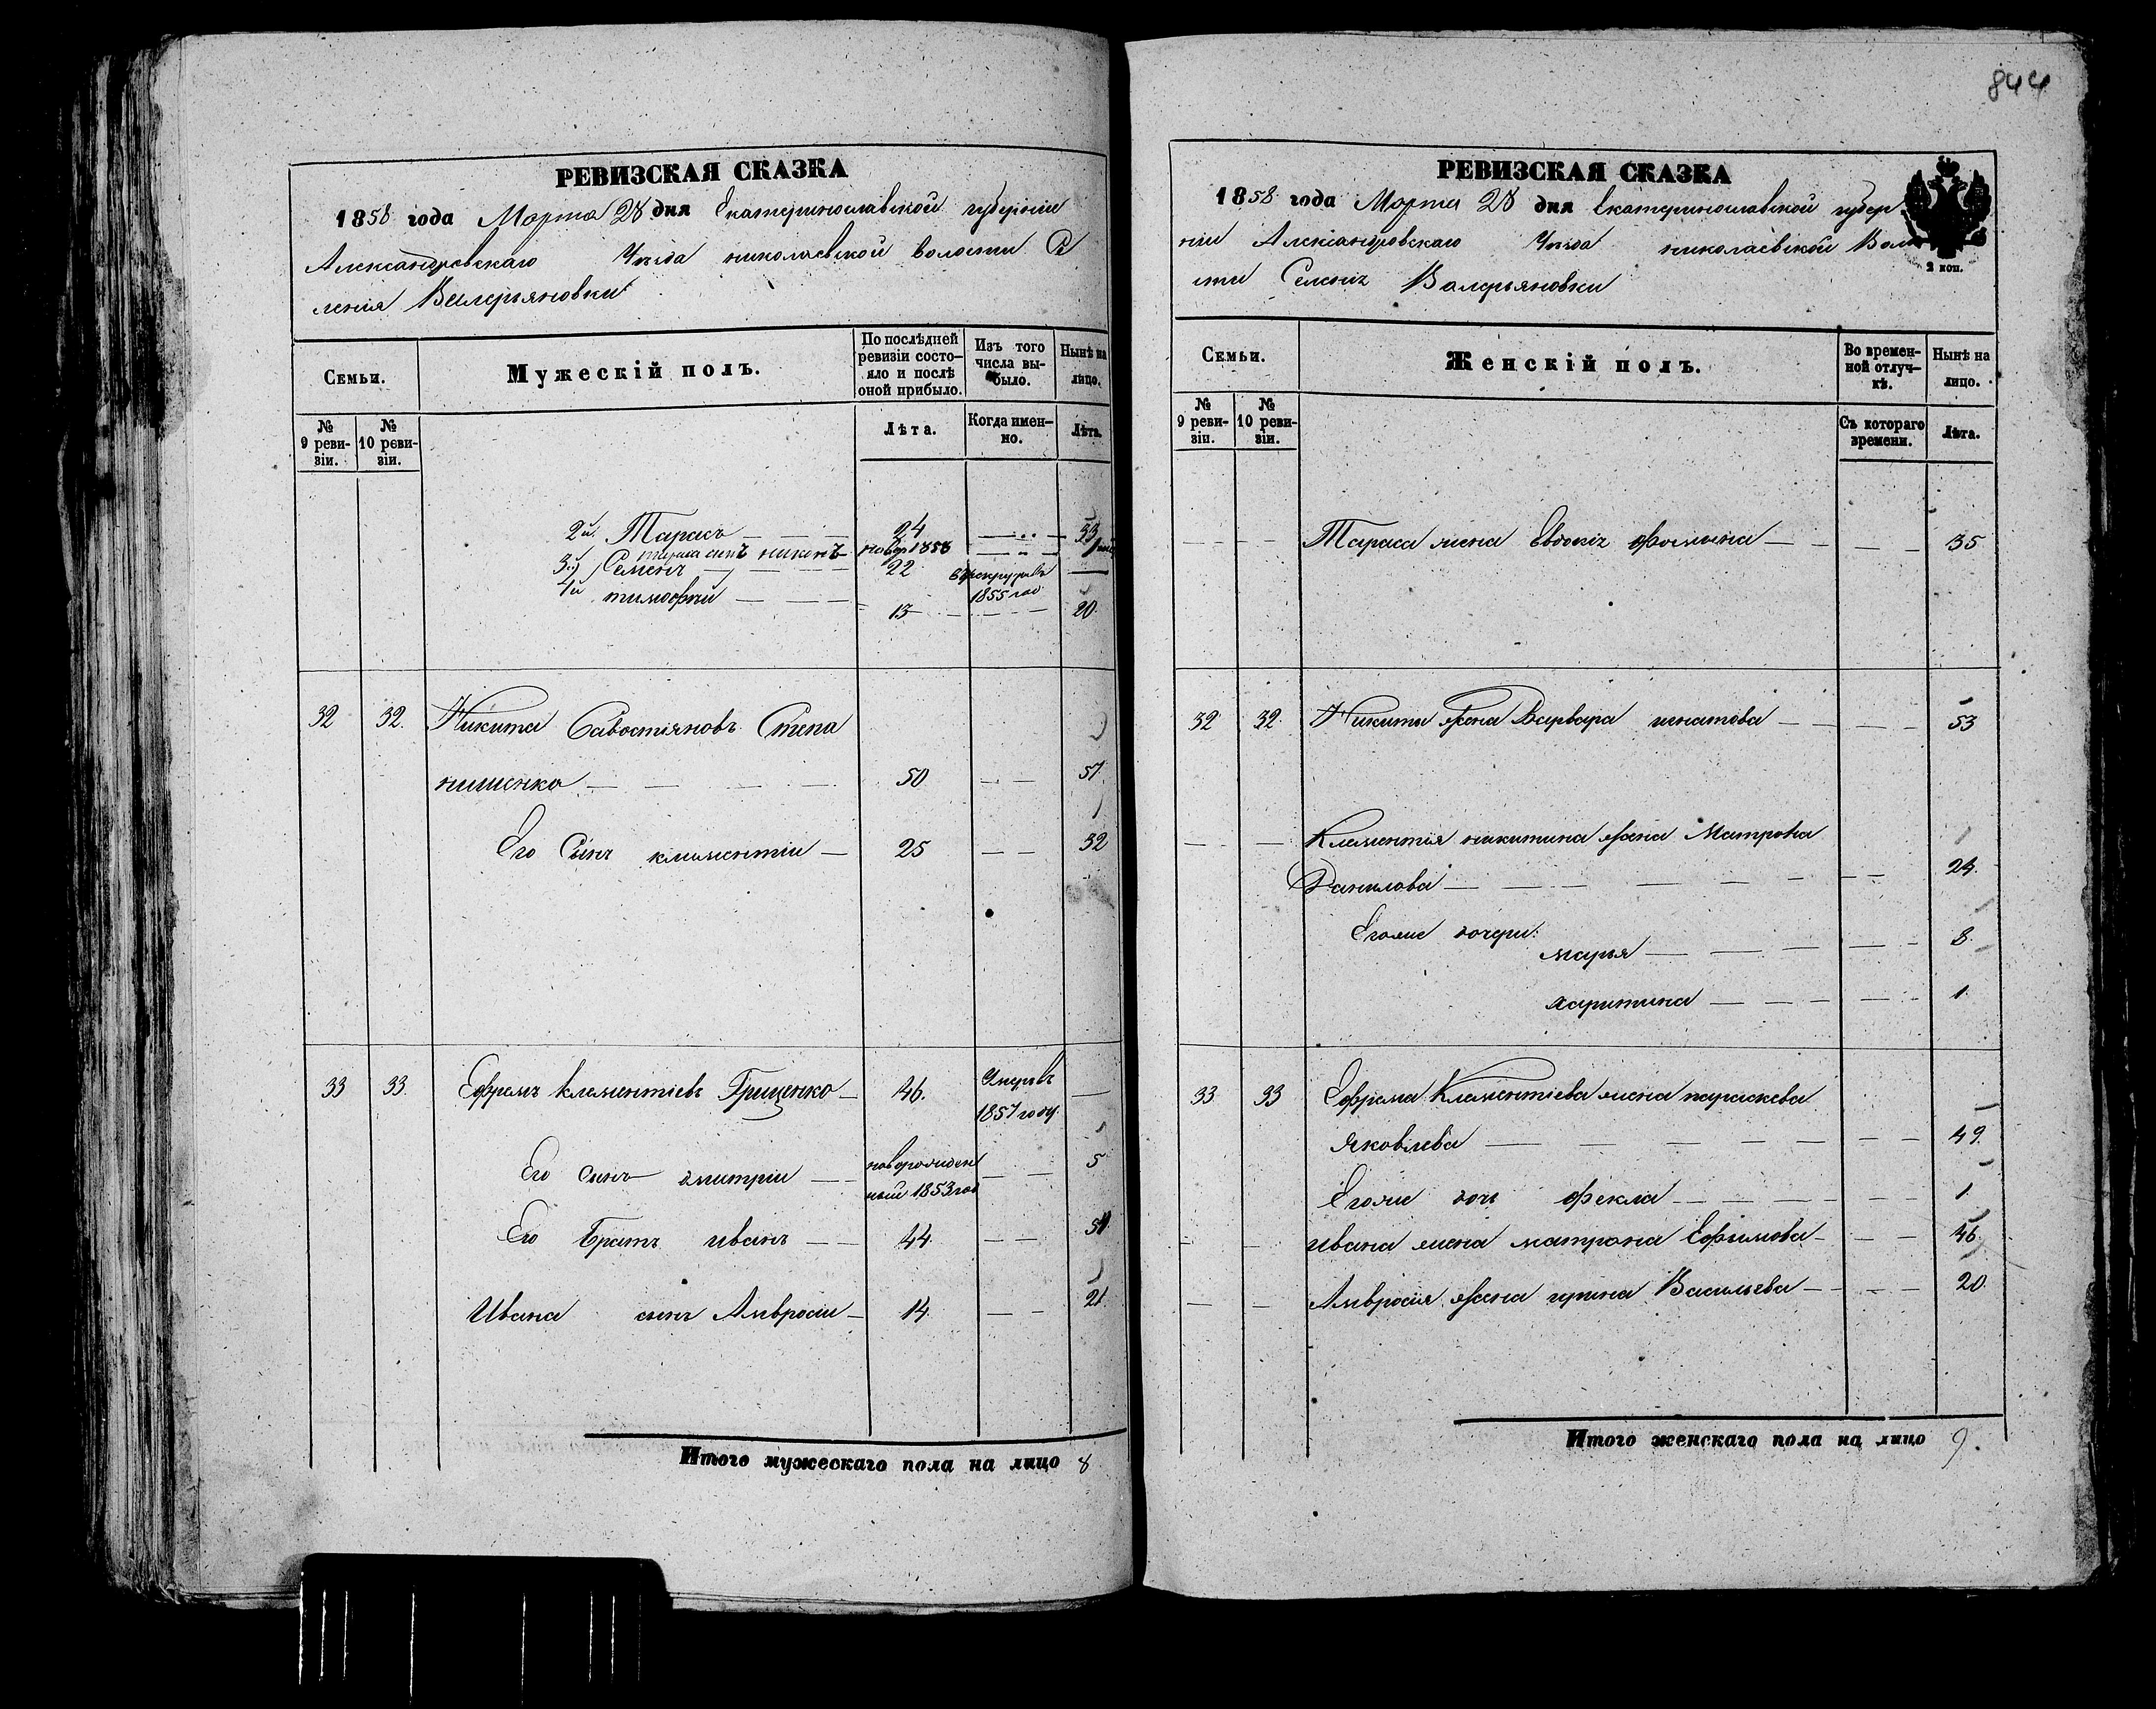 РЕВИЗСКАЯ СКАЗКА
1858 года Марта 28 дня Екатеринославской губерніи
Александровскаго Уѣзда николаевской волости Се
ленія Валерьяновки
Семьи.
Мужескій полъ.
По послѣдней ревизіи состо-
яло и послѣ оной прибыло.
Изъ того числа вы-
было.
Нынѣ на лицо.
№ 9 реви-
зіи.
№ 10 реви-
зіи.
Лѣта.
Когда имен-
но.
Лѣта.
2й Тарасъ 24 33
Тараса сынъ новор 1858
3й Семенъ 22 въ рекруты
1855 год
4й тимофей 13 20
32 32. Никита Савостіяновъ Степа
нишенко 50 57
Его Сынъ климентіи 25 32
33 33 Ефремъ климентіевъ Грищенко 46. Умеръ въ
1857 году
Его сынъ дмитріи новорожден
ный 1853 год 5
Его Братъ иванъ 44 51
Ивана сынъ Амвросіи 14 21
Итого мужескаго пола на лицо 8
844
РЕВИЗСКАЯ СКАЗКА
1858 года Марта 28 дня Екатеринославской губер
ніи Александровскаго Уѣзда николаевской Вол
сти Селенія Валерьяновки
2 коп.
Семьи.
Женскій полъ.
Во времен-
ной отлуч-
кѣ.
Нынѣ на лицо.
№ 9 реви-
зіи.
№ 10 реви-
зіи.
Съ котораго времени.
Лѣта.
Тараса жена Евдокія Фомина 35
32 32. Никиты жена Варвара игнатова 53
Климентія никитина жена Матрона
Данилова 24.
Егоже дочери:
марья 8
харитина 1
33 33 Ефрема Климентіева жена параскева
Яковлева 49
Егоже дочь фекла 1
ивана жена матрона Ефимова 46
Амвросія жена ирина Васильева 20
Итого женскаго пола на лицо 9.